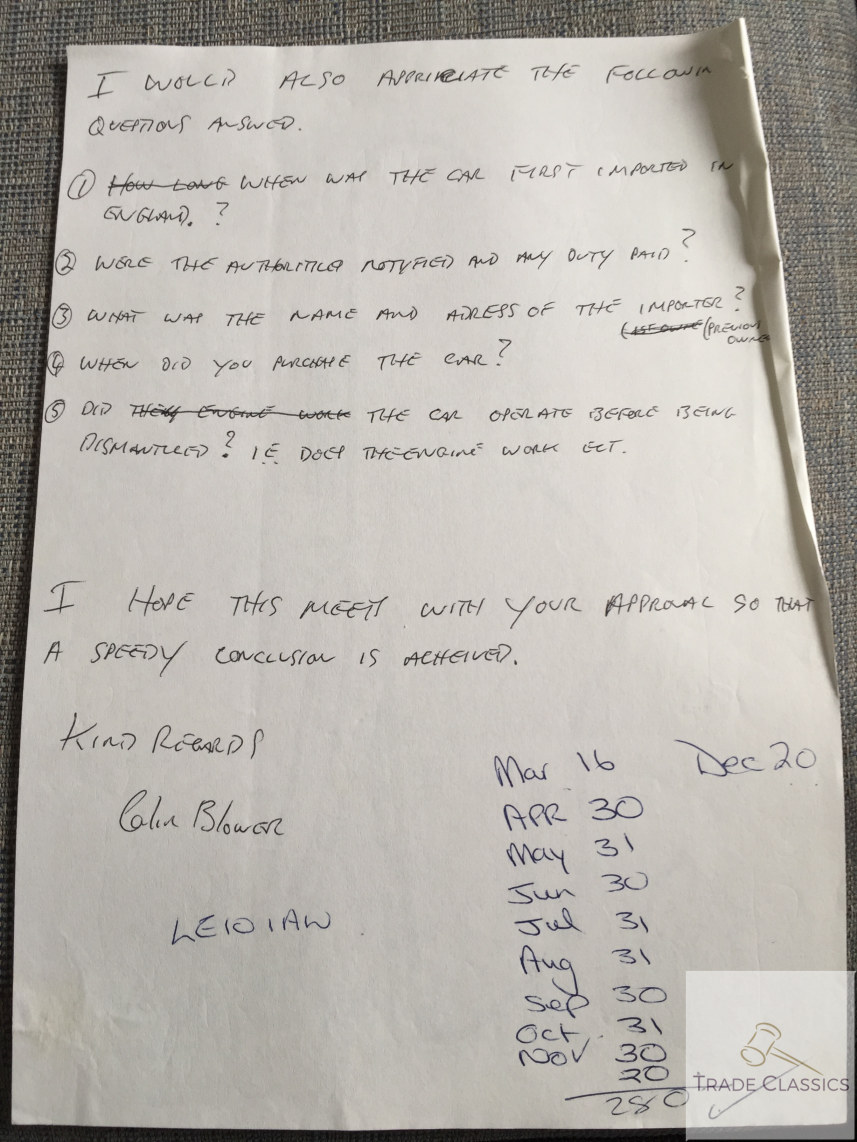 I WOULD ALSO APPRICIATE THE FOLLOWIN
QUESTIONS ANSWED.
① HOW LONG WHEN WAS THE CAR FIRST IMPORTED IN
ENGLAND. ?
② WERE THE AUTHORITIES NOTYFIED AND ANY DUTY PAID ?
③ WHAT WAS THE NAME AND ADRESS OF THE IMPORTER ?
(LAST OWNE (PREVIOUS
OWNE
④ WHEN DID YOU PURCHASE THE CAR ?
⑤ DID THEY ENGINE WORK THE CAR OPERATE BEFORE BEING
DISMANTLED ? IE DOES THE ENGINE WORK ECT.
I HOPE THIS MEETS WITH YOUR APPROVAL SO THAT
A SPEEDY CONCLUSION IS ACHEIVED.
KIND REGARDS
Colin BLOWER
LE101AW
Mar 16 Dec 20
APR 30
May 31
Jun 30
Jul 31
Aug 31
Sep 30
Oct 31
Nov 30
20
280
TRADE CLASSICS